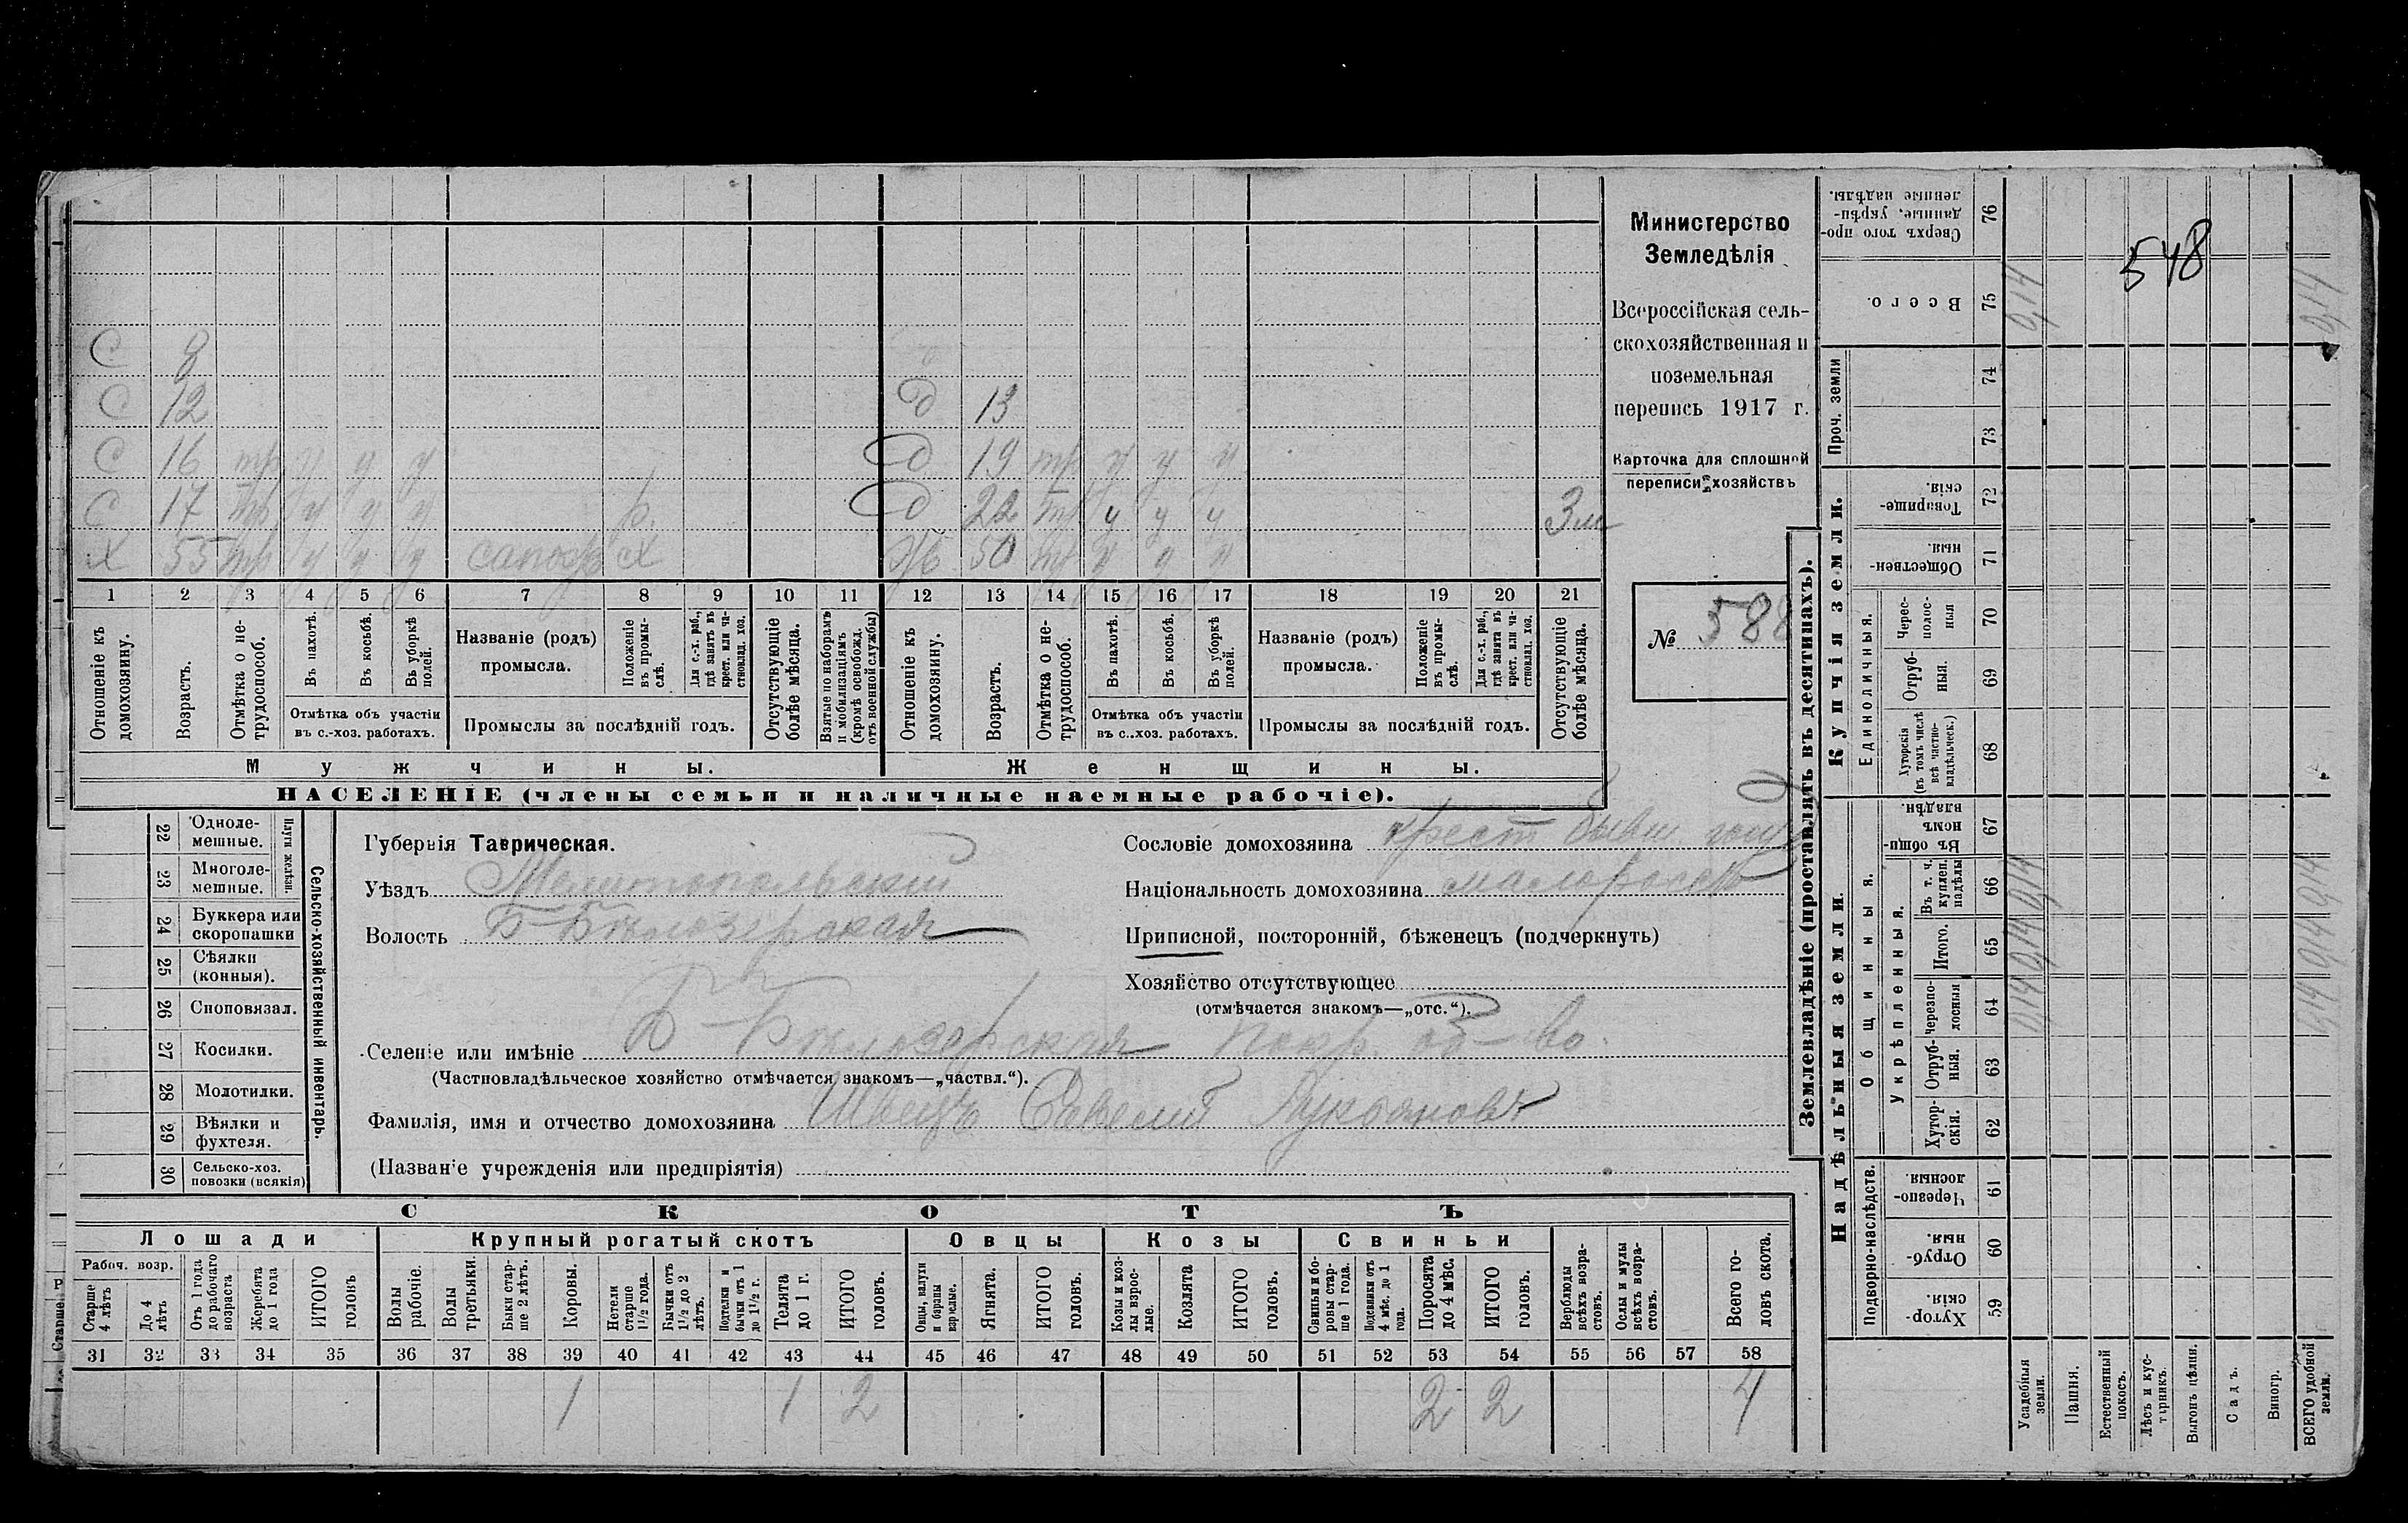 С 8
С 12 Д 13
С 16 тр у у у Д 19 тр у у у
С 17 тр у у у р. Д 22 тр у у у 3 м
Х 55 тр у у у сапож Х Ж 50 тр у у у
1 2 3 4 5 6 7 8 9 10 11 12 13 14 15 16 17 18 19 20 21
Отношеніе къ домохозяину.
Возрастъ.
Отмѣтка о не-трудоспособ.
Въ пахотѣ.
Въ косьбѣ.
Въ уборкѣ полей.
Отмѣтка объ участіи въ с.-хоз. работахъ.
Названіе (родъ) промысла.
Положеніе въ промы-слѣ.
Для с.-х. раб., гдѣ занятъ въ крест. или ча-стновлад. хоз.
Промыслы за послѣдній годъ.
Отсутствующіе болѣе мѣсяца.
Взятые по наборамъ и мобилизаціямъ (кромѣ освобожд. отъ военной службы)
Отношеніе къ домохозяину.
Возрастъ.
Отмѣтка о не-трудоспособ.
Въ пахотѣ.
Въ косьбѣ.
Въ уборкѣ полей.
Отмѣтка объ участіи въ с..хоз. работахъ.
Названіе (родъ) промысла.
Положеніе въ промы-слѣ.
Для с.-х. раб., гдѣ занята въ крест. или ча-стновлад. хоз.
Промыслы за послѣдній годъ.
Отсутствующіе болѣе мѣсяца.
Мужчины.
Женщины.
НАСЕЛЕНІЕ (члены семьи и наличные наемные рабочіе).
Министерство
Земледѣлія
Всероссійская сель-
скохозяйственная и
поземельная
перепись 1917 г.
Карточка для сплошной
переписи хозяйствъ
№ 588
22 Одноле-мешные.
23 Многоле-мешные.
Плуги желѣзн.
24 Буккера или скоропашки
25 Сѣялки (конныя).
26 Сноповязал.
27 Косилки.
28 Молотилки.
29 Вѣялки и фухтеля.
30 Сельско-хоз. повозки (всякія)
Сельско-хозяйственный инвентарь.
Губернія Таврическая.
Уѣздъ Мелитопольский
Волость Б-Бѣлозерская
Селеніе или имѣніе Б-Бѣлозерская Покр об-во.
(Частновладѣльческое хозяйство отмѣчается знакомъ—„частвл.“).
Фамилія, имя и отчество домохозяина Швець Савелий Лукьяновъ
(Названіе учрежденія или предпріятія)
Сословіе домохозяина крест бывш
Національность домохозяина малороссъ
Приписной, посторонній, бѣженецъ (подчеркнуть)
Хозяйство отсутствующее
(отмѣчается знакомъ—„отс.“).
СКОТЪ
Лошади Крупный рогатый скотъ Овцы Козы Свиньи
Рабоч. возр.
Старше 4 лѣтъ
До 4 лѣтъ
Отъ 1 года до рабочаго возраста
Жеребята до 1 года
ИТОГО головъ
Волы рабочіе.
Волы третьяки.
Быки стар-ше 2 лѣтъ.
Коровы.
Нетели старше 1½ года.
Бычки отъ 1½ до 2 лѣтъ.
Подтелки и бычки отъ 1 до 1½ г.
Телята до 1 г.
ИТОГО головъ.
Овцы, валухи и бараны взрослые.
Ягнята.
ИТОГО головъ.
Козы и коз-лы взрос-лые.
Козлята
ИТОГО головъ.
Свиньи и бо-ровы стар-ше 1 года.
Подсвинки отъ 4 мѣс. до 1 года.
Поросята до 4 мѣс.
ИТОГО головъ.
Верблюды всѣхъ возра-стовъ.
Ослы и мулы всѣхъ возра-стовъ.
Всего го-ловъ скота.
31 32 33 34 35 36 37 38 39 40 41 42 43 44 45 46 47 48 49 50 51 52 53 54 55 56 57 58
1 1 2 2 2 4
Землевладѣніе (проставлять въ десятинахъ).
Надѣльныя земли.
Купчія земли.
Проч. земли
Подворно-наслѣдств.
Общинныя.
Укрѣпленныя.
Единоличныя.
Сверхъ того про-данные, укрѣп-ленные надѣлы. 76
Всего. 75
74
73
Товарище-скія. 72
Обществен-ныя. 71
Черес-полос-ныя 70
Отруб-ныя. 69
Хуторскія (въ томъ числѣ всѣ частно-владѣльческ.) 68
Въ общи-номъ владѣн. 67
Въ т. ч. куплен. надѣлы 66
Итого. 65
Черезпо-лосныя 64
Отруб-ныя. 63
Хутор-скія. 62
Черезпо-лосныя 61
Отруб-ныя. 60
Хутор-скія. 59
Усадебныя земли. 0,14 0,14 0,14 0,14
Пашня.
Естественный покосъ.
Лѣсъ и кус-тарникъ.
Выгонъ цѣлин.
Садъ.
Виногр.
ВСЕГО удобной земли. 0,14 0,14 0,14 0,14
548
Старше